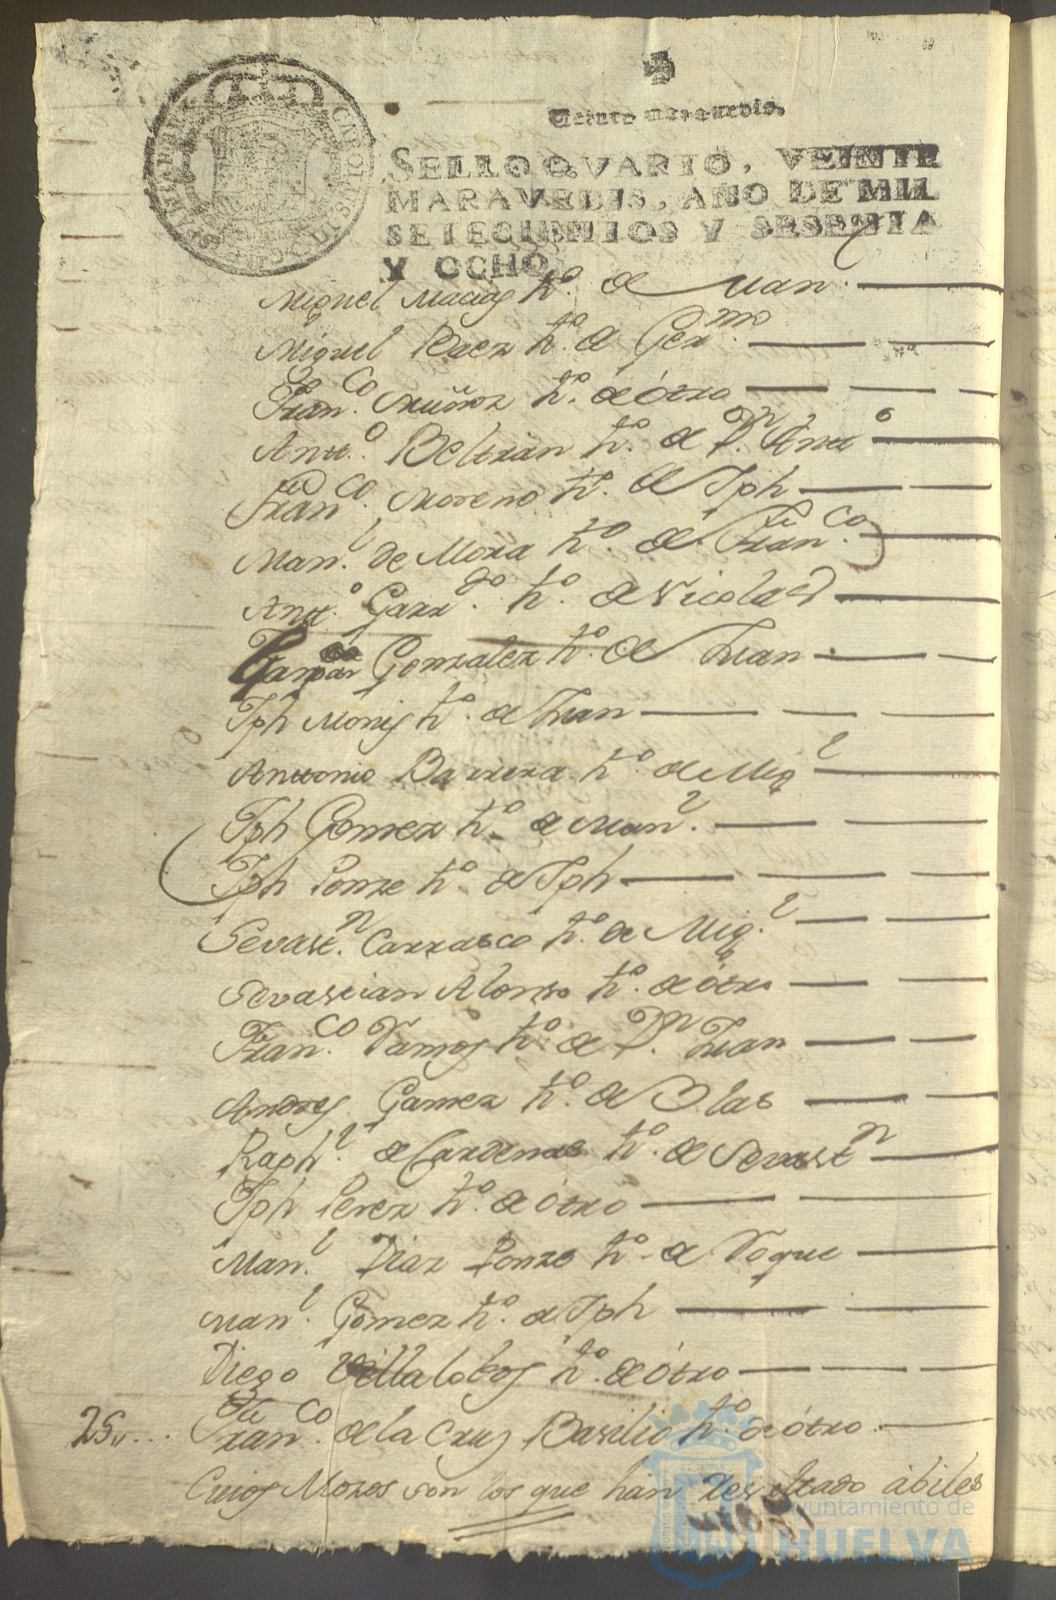 Veinte maravedis.
SELLO QVARTO, VEINTE
MARAVEDIS, AÑO DE MIL
SETECIENTOS Y SESENTA
Y OCHO
Miguel Macias hº. de Juan
Miguel Baez hº. de Germo.
Franco. Muñoz hº. de ótro
Antto. Beltran hº. de Dn. Antto
Franco. Moreno hº. de Jph
Manl. de Mora hº. de Franco.
Antto. Garrdo. hº. de Nicolas
Gaspar Gonzalez hº. de Juan
Jph Monis hº. de Juan
Anttonio Barrera hº. de Migl
Jph Gomez hº. de Manl.
Jph Ponze hº. de Jph
Sevastn. Carrasco hº. de Migl.
Sevastian Alonso hº. de ótro
Franco. Ramos hº. de Dn. Juan
Andres Gamez hº. de Blas
Raphl. de Cardenas hº. de Sevastn
Jph Perez hº. de ótro
Manl. Diaz Ponze hº. de Roque
Manl. Gomez hº. de Jph
Diego Villalobos hº. de ótro
25,,... Franco. de la Cruz Basilio hº. de ótro.
Cuios Mozos son los que han resultado ábiles
Ayuntamiento de
HUELVA